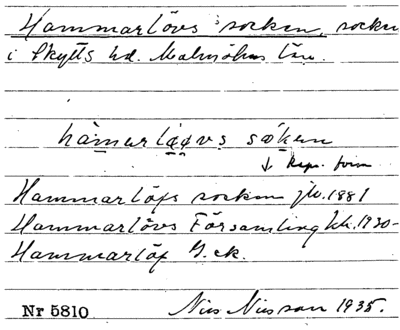 Hammarlövs socken, socken
i Skytts hd. Malmöhus län.
hàmarlø̨vs sǿken
↓ Repr. form
Hammarlöfs socken jb. 1881
Hammarlövs Församling kb. 1930-
Hammarlöf G. ek.
Nr 5810 Nils Nilsson 1935.